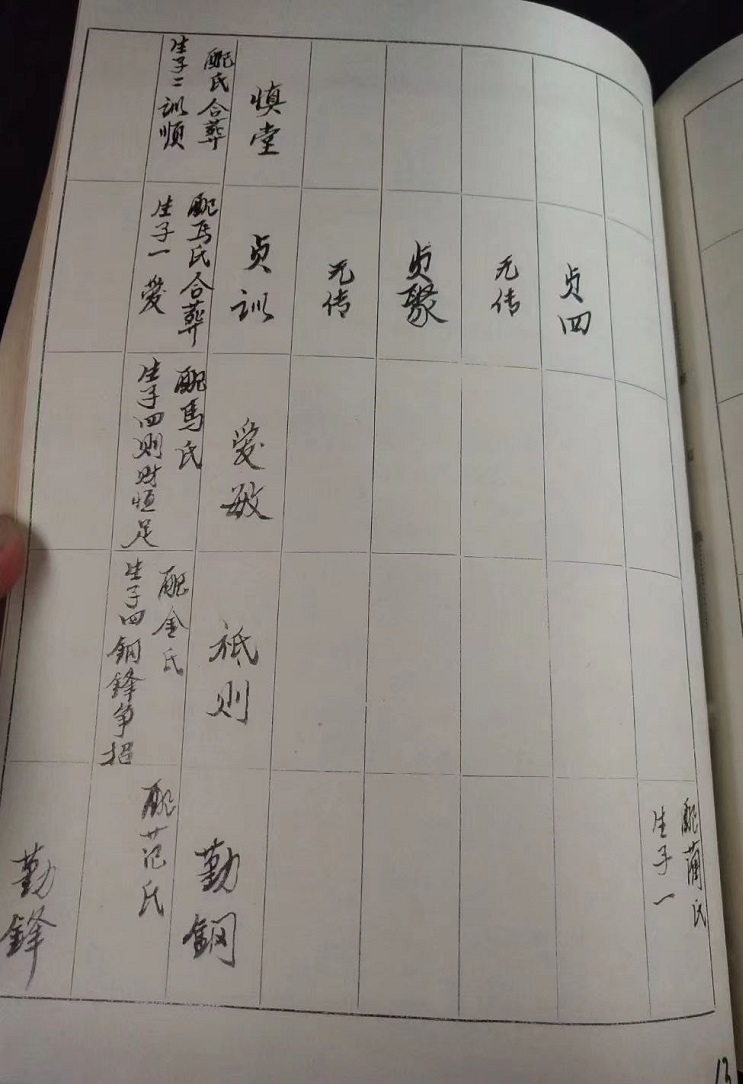 慎堂
配氏合葬
生子二训顺
贞四
无传
贞聚
无传
贞训
配马氏合葬
生子一 爱
爱敏
配馬氏
生子四则财恒足
祗则
配金氏
生子四鋼鋒争招
配氏
生子一
勤鋼
配范氏
勤鋒